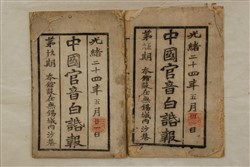 光緒二十四年五月日
中國官音白話報
第期 本館設在無錫城內沙巷
光緒二十四年五月日
中國官音白話報
第期 本館設在無錫城內沙巷